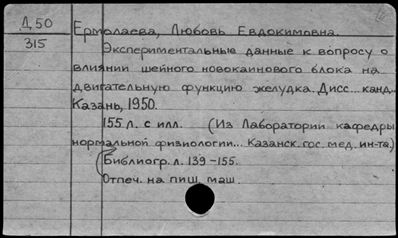 Д 50
315
Ермолаева, Любовь Евдокимовна.
Экспериментальные данные к вопросу о
влиянии шейного новокаинового блока на
двигательную функцию желудка. Дисс... канд...
Казань, 1950.
155 л. с илл. (Из Лаборатории кафедры
нормальной физиологии... Казанск. гос. мед. ин-та.)
Библиогр. л. 139-155.
Отпеч. на пиш. маш.